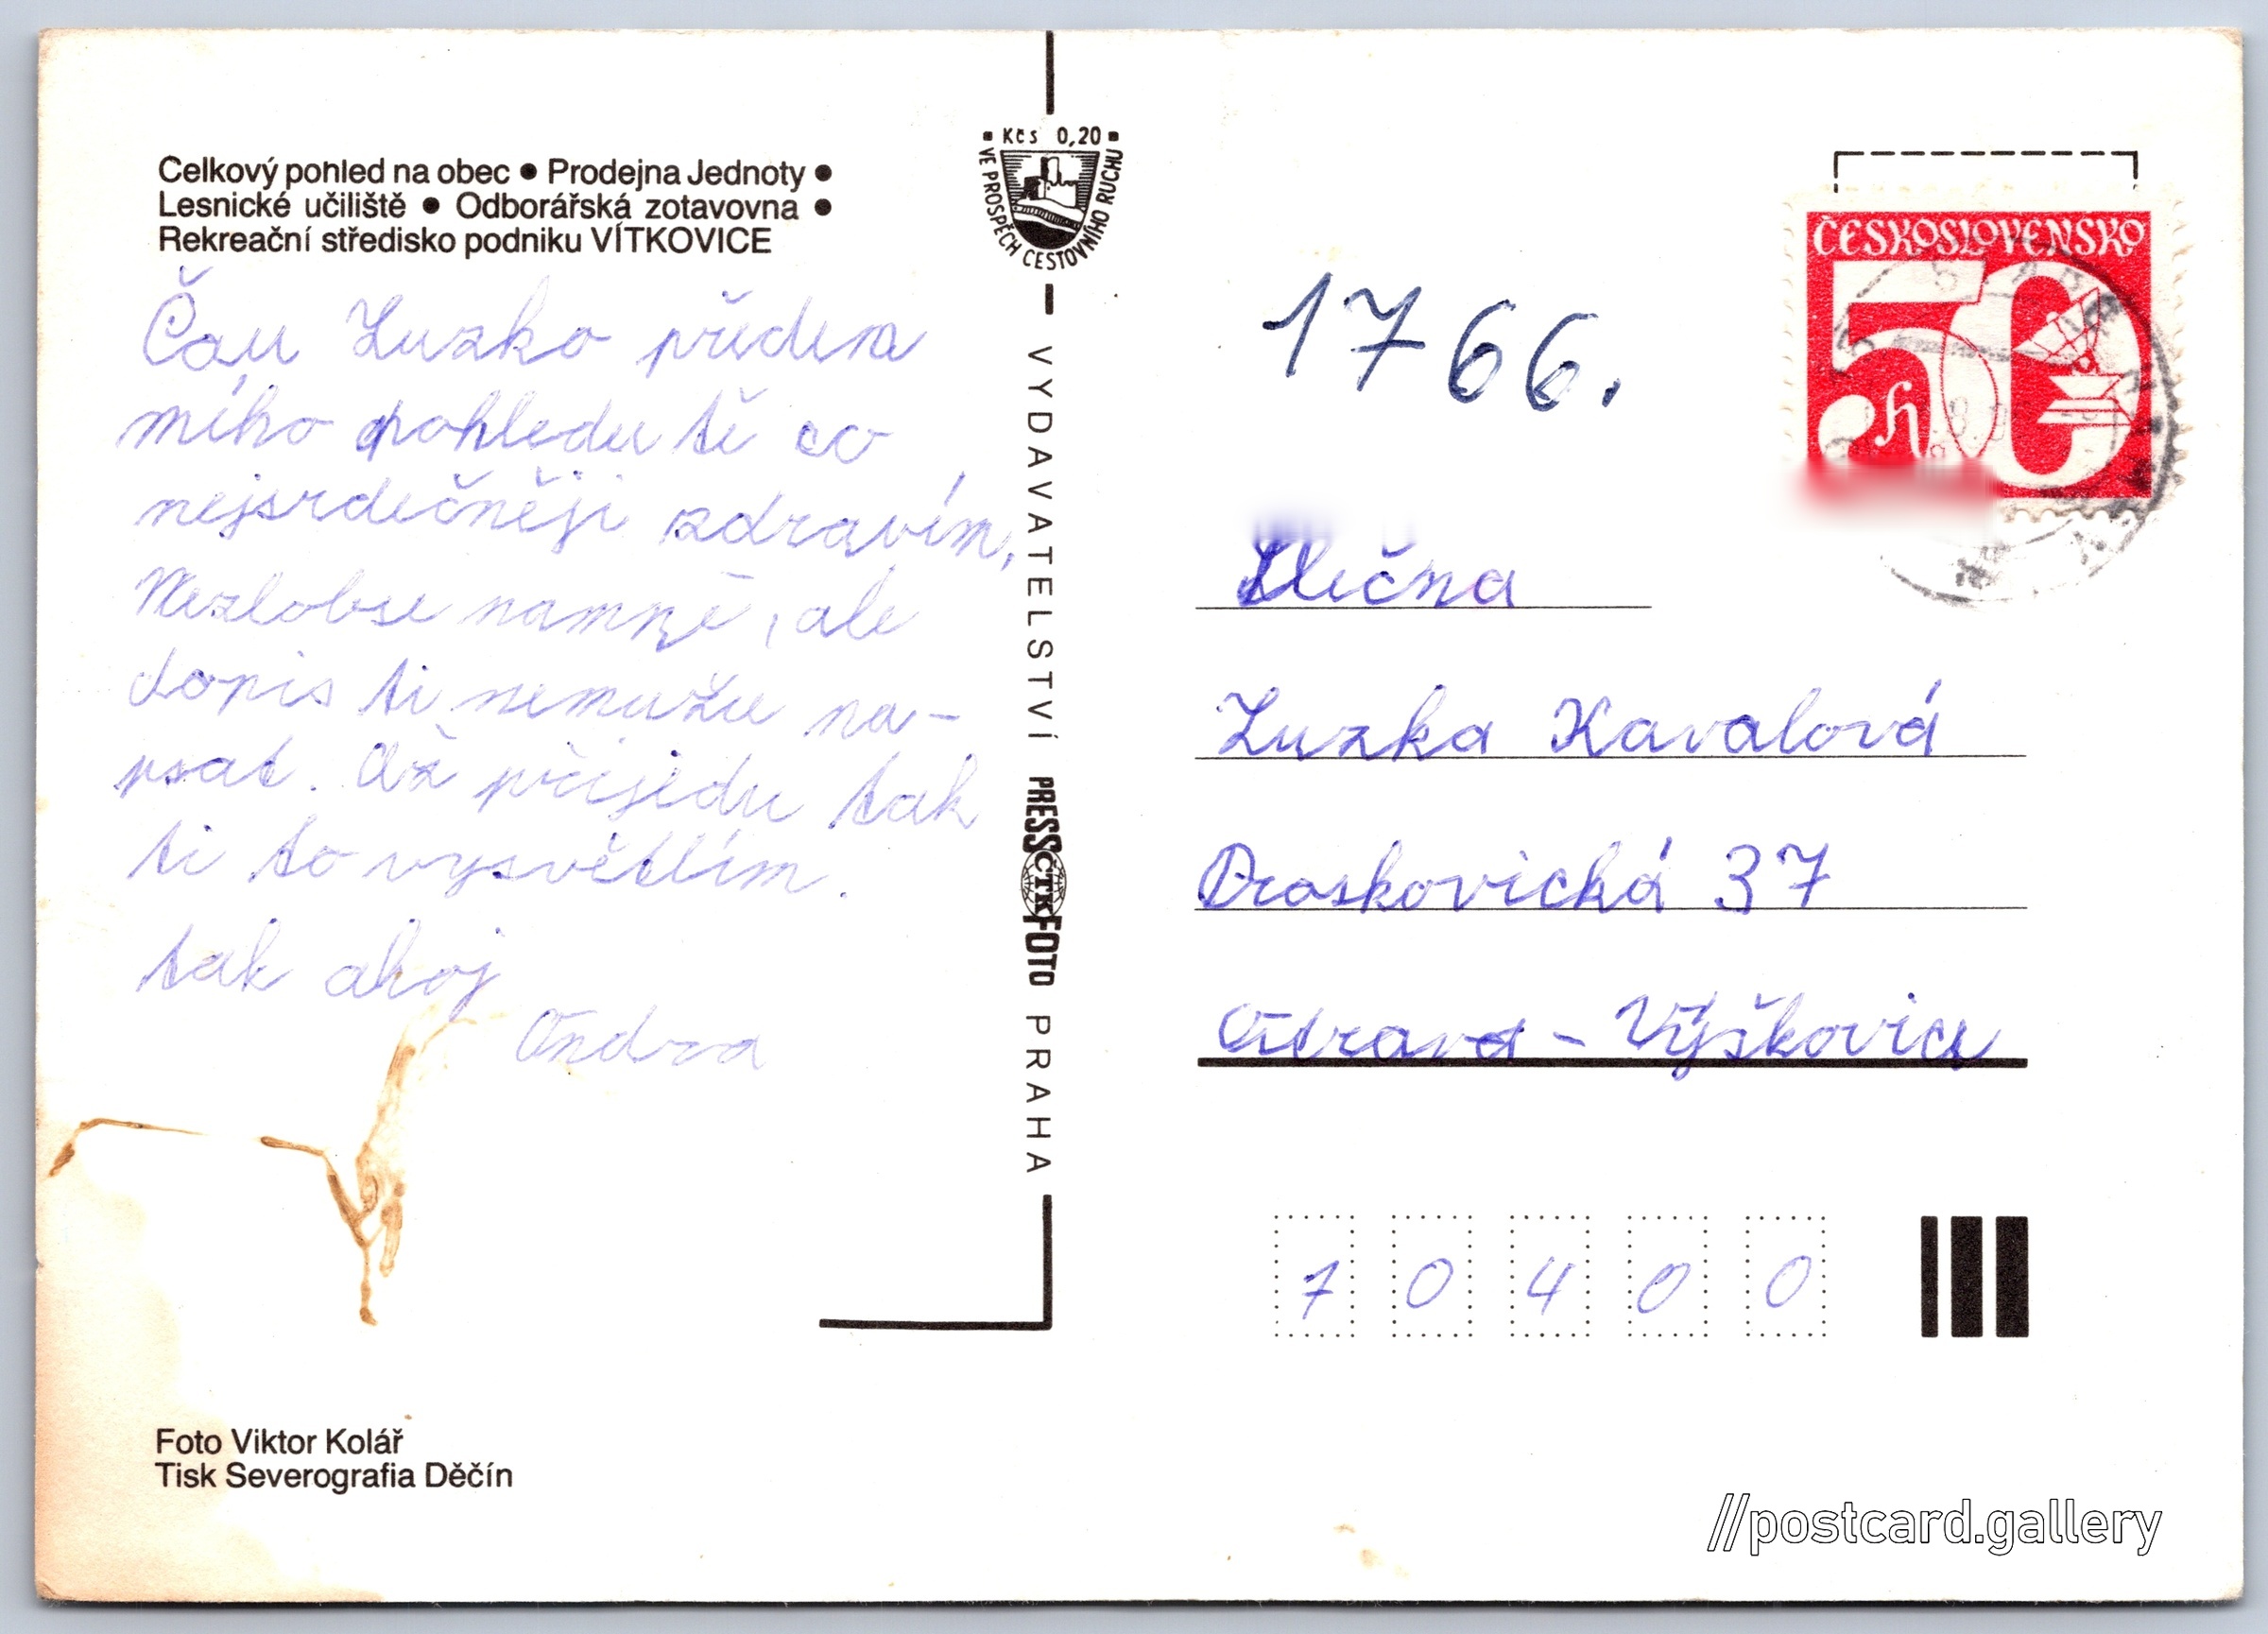 Celkový pohled na obec • Prodejna Jednoty •
Lesnické učiliště • Odborářská zotavovna •
Rekreační středisko podniku VÍTKOVICE
Čau Zuzko předem
mího pohledu tě co
nejsrdečněji zdravím,
Nezlobse namně, ale
dopis ti nemužu na-
psat. Až přijedu tak
ti to vysvětlím.
tak ahoj
Ondra
Foto Viktor Kolář
Tisk Severografia Děčín
Kčs 0,20
VE PROSPĚCH CESTOVNÍHO RUCHU
VYDAVATELSTVÍ PRESSFOTO PRAHA
ČTK
ČESKOSLOVENSKO
50 h
1766.
Slečna
Zuzka Kavalová
Proskovická 37
Ostrava - Výškovice
7 0 4 0 0
//postcard.gallery